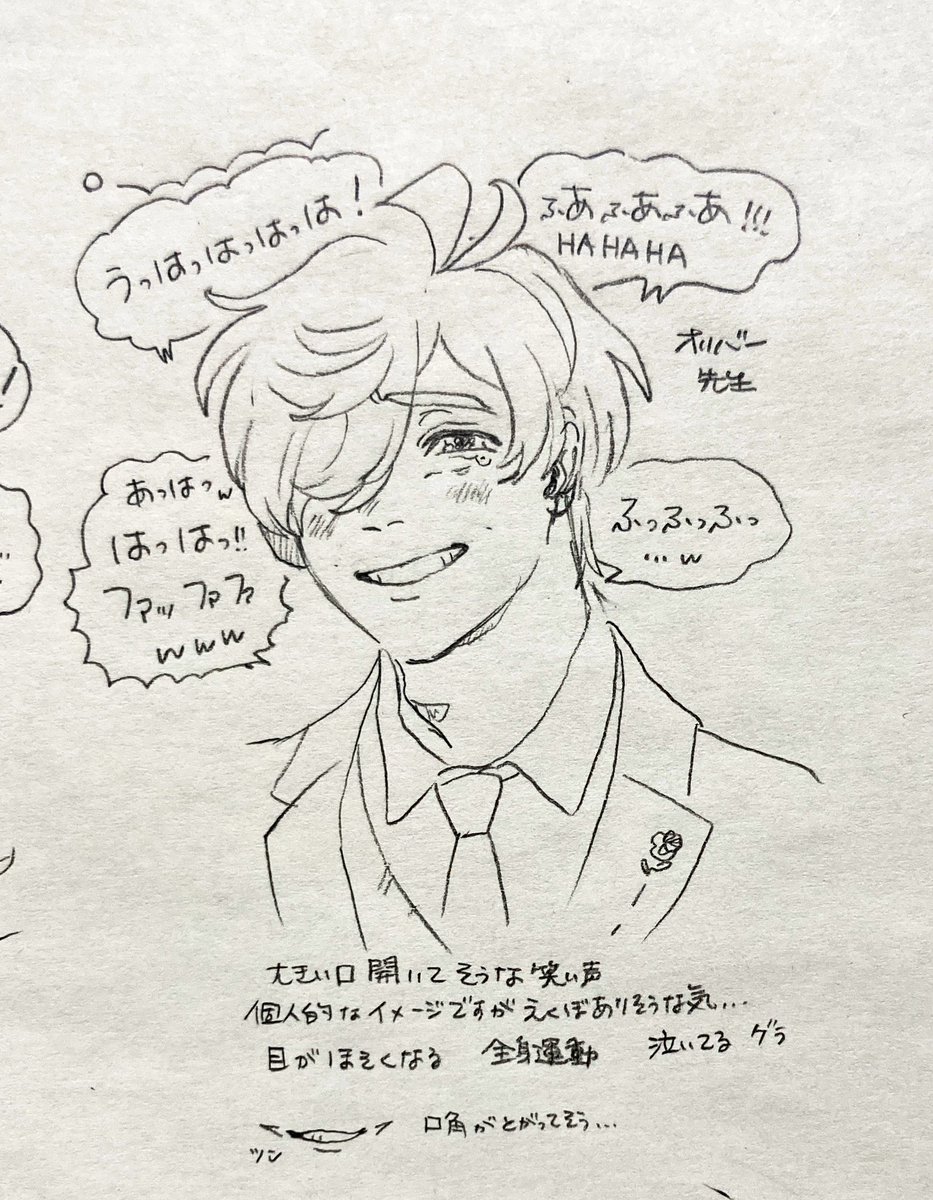 うっはっはっはっは!
ふあふあふあ!!!
HAHAHA
オリバー
先生
あっはっw
はっはっ!!
ファッファファ
www
ふっふっふっ
...w
大きい口開いてそうな笑い声
個人的なイメージですがえくぼありそうな気...
目がほそくなる 全身運動 泣いてる ゲラ
口角がとがってそう...
ツン